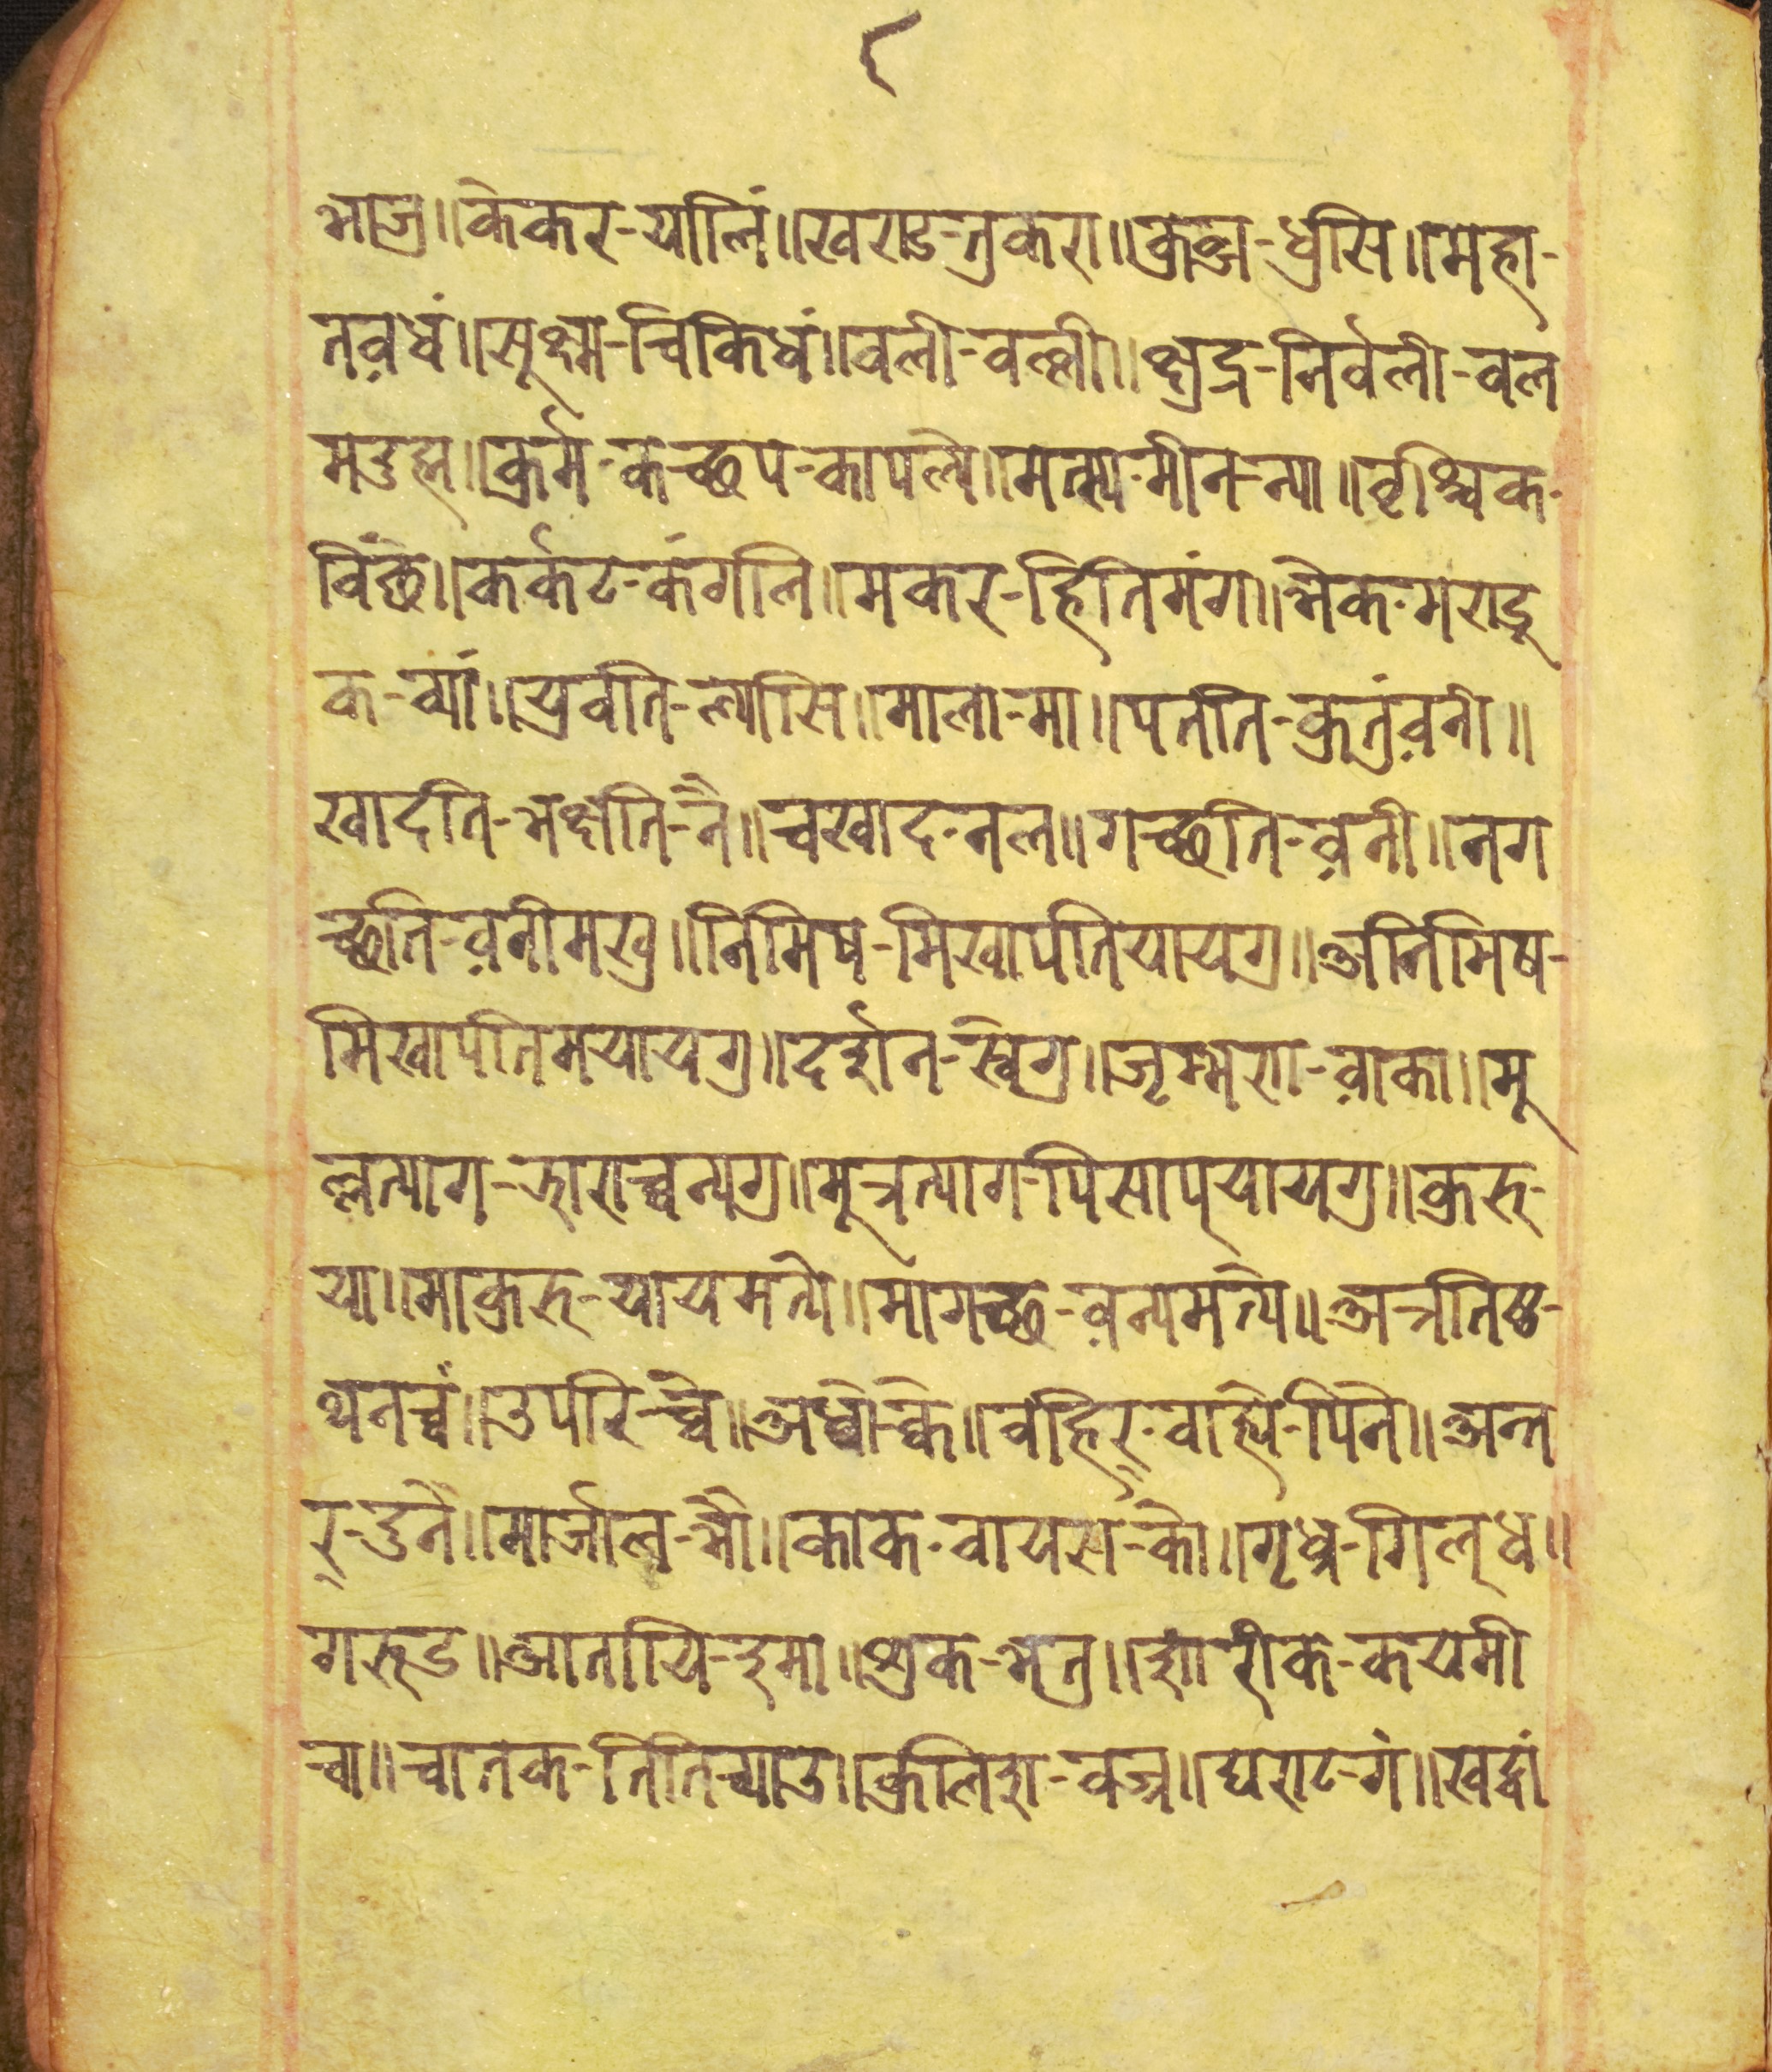 ९
भाज्र॥केकर-यालिं॥खराड-तुकरा॥कुब्ज-धुसि॥मेहा-
तव़धं॥सूक्ष्म-चिकिधं॥वली-वल्ली॥क्षुद्र-निर्वली-वल
मदुह्म॥कुर्म-कच्छप-कापल्ये॥मत्स्य-मीन-न्या॥वृश्चिक-
विंछे॥कर्कट-कंगलि॥मकर-हितिमंग॥भेक-मराडू
क-व्यां॥प्रवति-ल्यासि॥माला-मा॥पतति-कुतुंव़नी॥
खादति-भक्षति-नै॥चखाद-नल॥गच्छति-व़नी॥नग
च्छति-व़नीमखु॥निमिष-मिखापतियायगु॥अनिमिष-
मिखापतिमयायगु॥दर्शन-स्वेगु॥जृम्भरा-व़ाका॥मू
लत्याग-झाराच्वन्यगु॥मूत्रत्याग-पिसाप्यायगु॥कुरु-
या॥माकुरु-यायमते॥मागच्छ-व़न्यमत्ये॥अत्रतिष्ठ-
थनच्वं॥उपरि-च्वे॥अधो-क्वे॥वहिर्-वाह्ये-पिने॥अन्त
र्-दुने॥मार्जाल-भौ॥काक-वायस-को॥गृध्र-गिल्ध॥
गरुड॥आतायि-इमा॥शुक-भतु॥शारीक-कयमी
चा॥चातक-तितिच्याउ॥कुलिश-वज्र॥घराट-गं॥खट्वां